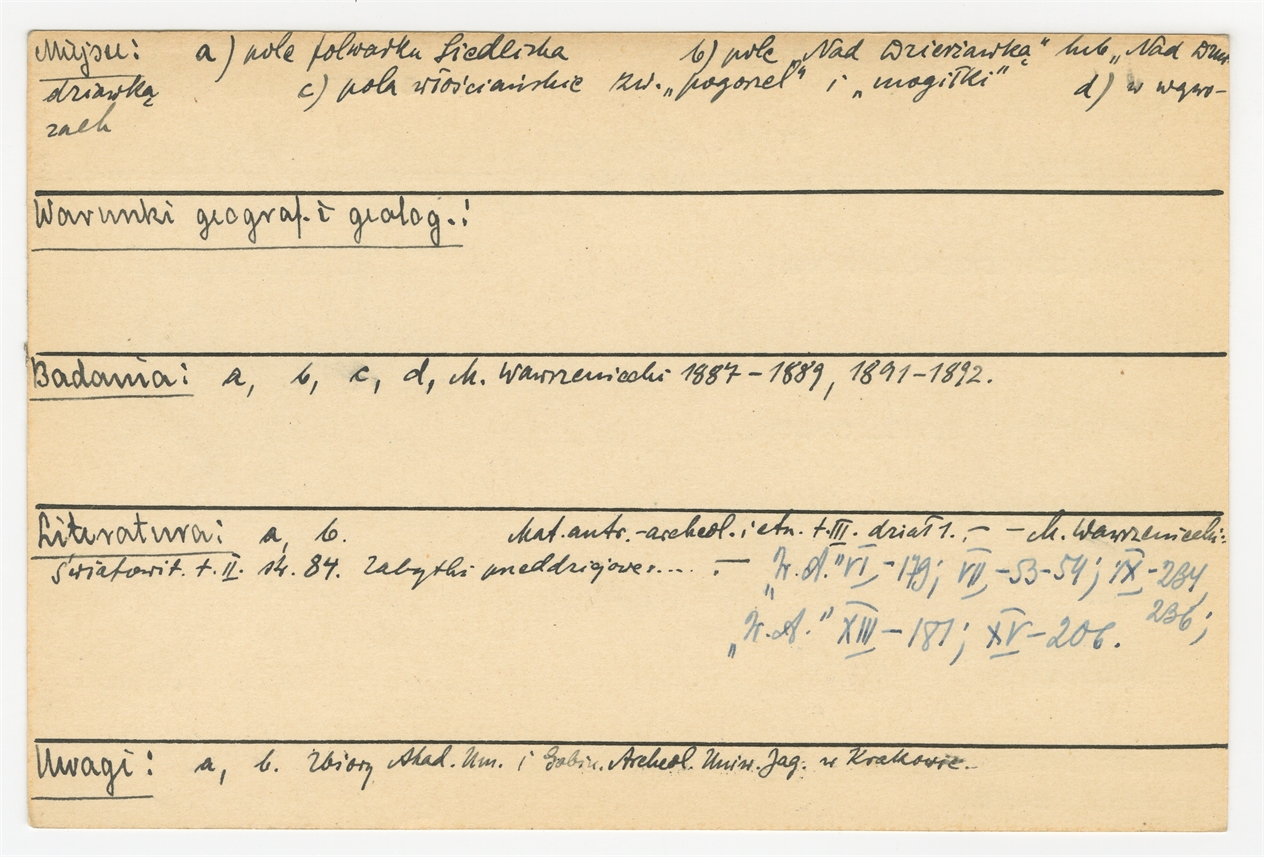 Miejsce: a) pole folwarku Siedliska b) pole „Nad Dzierżawką" lub „Nad
drzawką c) pola włościańskie zw. „pogorzel" i „mogiłki" d) w wąwo-
zach
Warunki geograf. i geolog.:
Badania: a, b, c, d, M. Wawrzeniecki 1887 - 1889, 1891-1892.
Literatura: a, b. Mat. antr.-archeol. i etn. t. III. dział 1. - - M. Wawrzeniecki:
Światowit. t. II. str. 84. Zabytki przeddziejowe.... - „Z. A." VI - 179; VII - 53-54; IX - 234,
236;
„Z. A." XIII - 181; XV - 206.
Uwagi: a, b. Zbiory Akad. Um. i Gabin. Archeol. Uniw. Jag. w Krakowie.